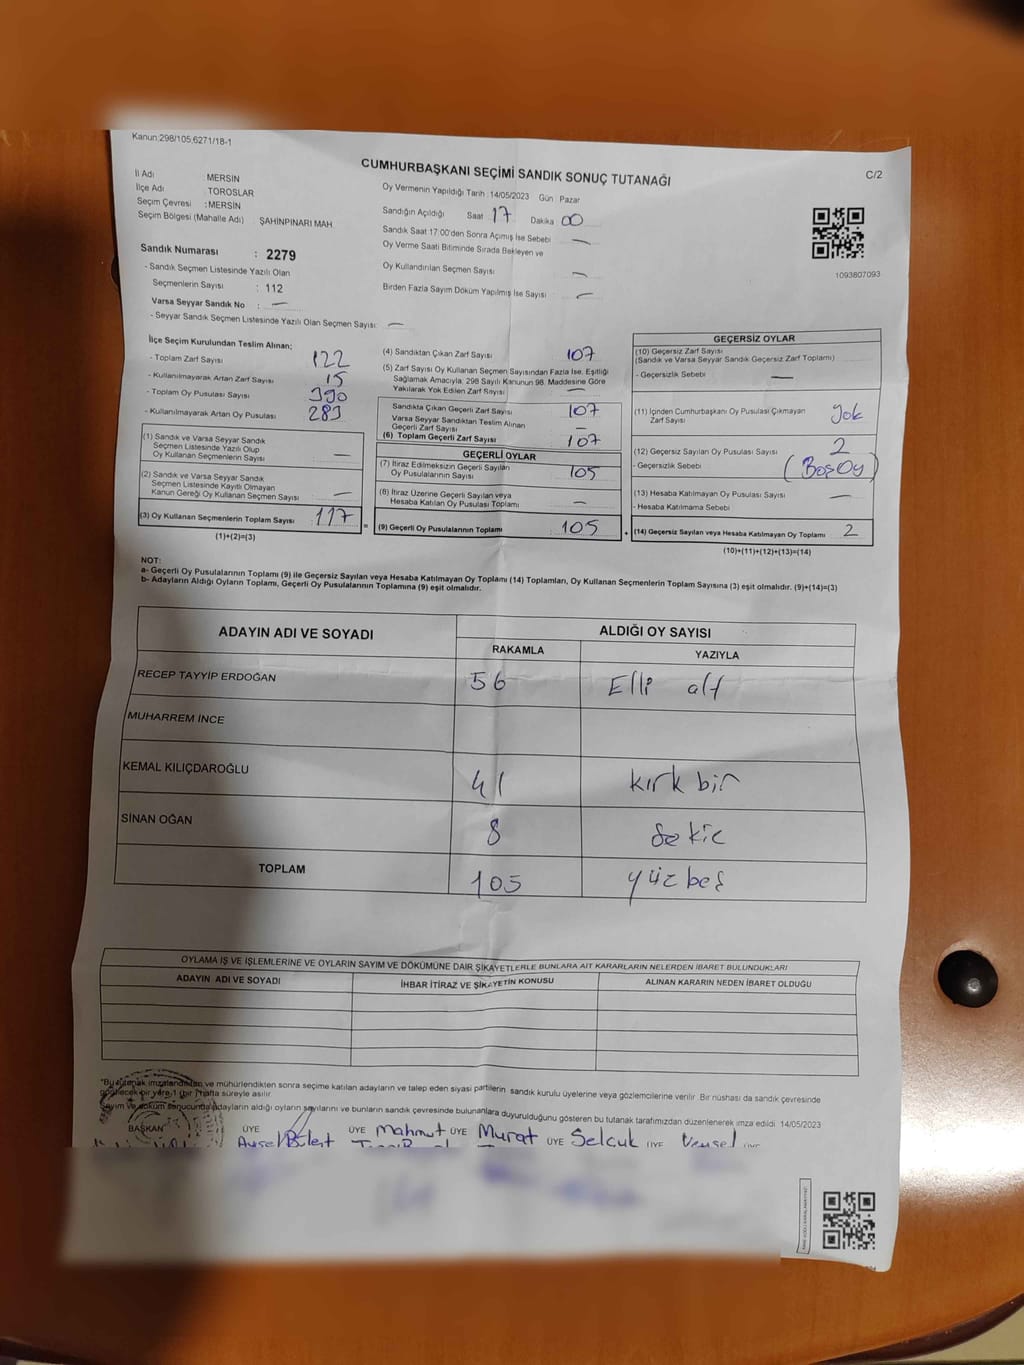 Kanun:298/105,6271/18-1
CUMHURBAŞKANI SEÇİMİ SANDIK SONUÇ TUTANAĞI
C/2
İl Adı MERSİN
İlçe Adı TOROSLAR
Seçim Çevresi :MERSİN
Seçim Bölgesi (Mahalle Adı) ŞAHİNPINARI MAH.
Oy Vermenin Yapıldığı Tarih :14/05/2023 Gün : Pazar
Sandığın Açıldığı Saat 17 Dakika 00
Sandık Saat 17:00'den Sonra Açımış İse Sebebi —
Oy Verme Saati Bitiminde Sırada Bekleyen ve
Oy Kullandırılan Seçmen Sayısı —
Birden Fazla Sayım Döküm Yapılmış İse Sayısı —
1093807093
Sandık Numarası : 2279
- Sandık Seçmen Listesinde Yazılı Olan
Seçmenlerin Sayısı : 112
Varsa Seyyar Sandık No : —
- Seyyar Sandık Seçmen Listesinde Yazılı Olan Seçmen Sayısı: —
İlçe Seçim Kurulundan Teslim Alınan;
- Toplam Zarf Sayısı 122
- Kullanılmayarak Artan Zarf Sayısı 15
- Toplam Oy Pusulası Sayısı 390
- Kullanılmayarak Artan Oy Pusulası 283
(1) Sandık ve Varsa Seyyar Sandık
Seçmen Listesinde Yazılı Olup
Oy Kullanan Seçmenlerin Sayısı —
(2) Sandık ve Varsa Seyyar Sandık
Seçmen Listesinde Kayıtlı Olmayan
Kanun Gereği Oy Kullanan Seçmen Sayısı —
(3) Oy Kullanan Seçmenlerin Toplam Sayısı 117 =
(1)+(2)=(3)
(4) Sandıktan Çıkan Zarf Sayısı 107
(5) Zarf Sayısı Oy Kullanan Seçmen Sayısından Fazla İse, Eşitliği
Sağlamak Amacıyla, 298 Sayılı Kanunun 98. Maddesine Göre
Yakılarak Yok Edilen Zarf Sayısı —
Sandıkta Çıkan Geçerli Zarf Sayısı 107
Varsa Seyyar Sandıktan Teslim Alınan
Geçerli Zarf Sayısı —
(6) Toplam Geçerli Zarf Sayısı 107
GEÇERLİ OYLAR
(7) İtiraz Edilmeksizin Geçerli Sayılan
Oy Pusulalarının Sayısı 105
(8) İtiraz Üzerine Geçerli Sayılan veya
Hesaba Katılan Oy Pusulası Toplamı —
(9) Geçerli Oy Pusulalarının Toplamı 105 +
GEÇERSİZ OYLAR
(10) Geçersiz Zarf Sayısı
(Sandık ve Varsa Seyyar Sandık Geçersiz Zarf Toplamı)
- Geçersizlik Sebebi —
(11) İçinden Cumhurbaşkanı Oy Pusulası Çıkmayan
Zarf Sayısı yok
(12) Geçersiz Sayılan Oy Pusulası Sayısı 2
- Geçersizlik Sebebi (Boş Oy)
(13) Hesaba Katılmayan Oy Pusulası Sayısı —
- Hesaba Katılmama Sebebi
(14) Geçersiz Sayılan veya Hesaba Katılmayan Oy Toplamı 2
(10)+(11)+(12)+(13)=(14)
NOT:
a- Geçerli Oy Pusulalarının Toplamı (9) ile Geçersiz Sayılan veya Hesaba Katılmayan Oy Toplamı (14) Toplamları, Oy Kullanan Seçmenlerin Toplam Sayısına (3) eşit olmalıdır. (9)+(14)=(3)
b- Adayların Aldığı Oyların Toplamı, Geçerli Oy Pusulalarının Toplamına (9) eşit olmalıdır.
ADAYIN ADI VE SOYADI ALDIĞI OY SAYISI
RAKAMLA YAZIYLA
RECEP TAYYİP ERDOĞAN 56 Elli altı
MUHARREM İNCE
KEMAL KILIÇDAROĞLU 41 kırk bir
SİNAN OĞAN 8 Sekiz
TOPLAM 105 yüz beş
OYLAMA İŞ VE İŞLEMLERİNE VE OYLARIN SAYIM VE DÖKÜMÜNE DAİR ŞİKAYETLERLE BUNLARA AİT KARARLARIN NELERDEN İBARET BULUNDUKLARI
ADAYIN ADI VE SOYADI İHBAR İTİRAZ VE ŞİKAYETİN KONUSU ALINAN KARARIN NEDEN İBARET OLDUĞU
*Bu tutanak imzalandıktan ve mühürlendikten sonra seçime katılan adayların ve talep eden siyasi partilerin sandık kurulu üyelerine veya gözlemcilerine verilir. Bir nüshası da sandık çevresinde
görülecek bir yere 1 (bir) hafta süreyle asılır.
Sayım ve döküm sonucunda adayların aldığı oyların sayılarını ve bunların sandık çevresinde bulunanlara duyurulduğunu gösteren bu tutanak tarafımızdan düzenlenerek imza edildi. 14/05/2023
BAŞKAN ÜYE ÜYE Mahmut ÜYE Murat ÜYE Selcuk ÜYE Veysel ÜYE
Aysel Bülent